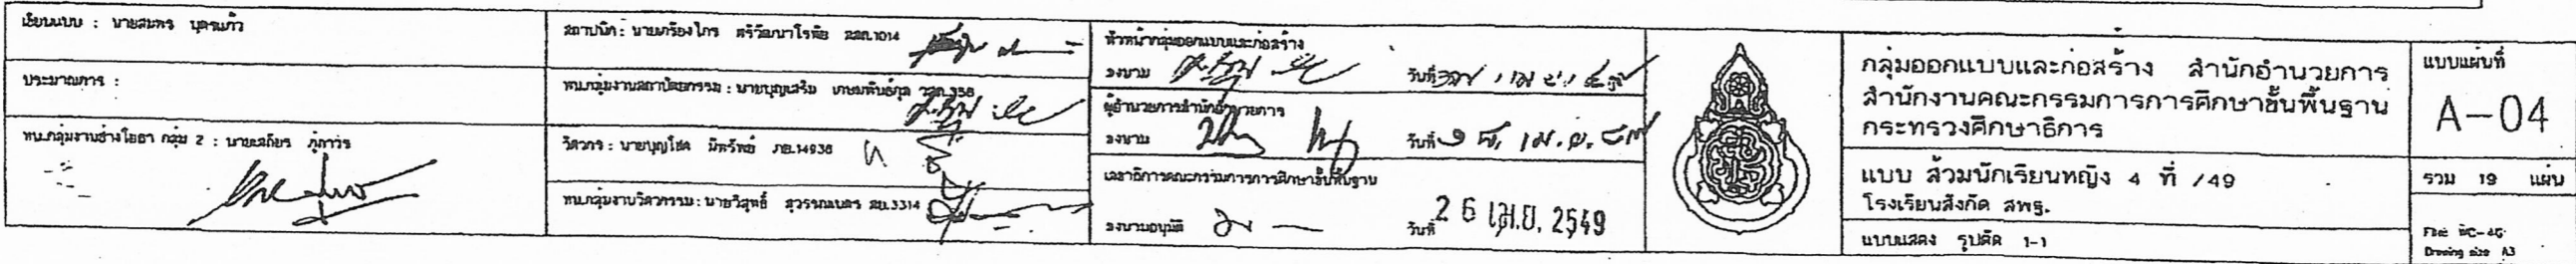 เขียนแบบ : นายสมพร บุตรแก้ว
ประมาณการ :
หน.กลุ่มงานช่างโยธา กลุ่ม 2 : นายเสถียร
สถาปนิก : นายเกรียงไกร ศรีวัฒนาโรทัย สสถ.1014
หน.กลุ่มงานสถาปัตยกรรม : นายบุญเสริม เกษมพันธ์กุล
วิศวกร : นายบุญโชค มีทรัพย์ ภย.14936
หน.กลุ่มงานวิศวกรรม : นายวิสุทธิ์ สุวรรณเนตร สย.3314
หัวหน้ากลุ่มออกแบบและก่อสร้าง
ลงนาม วันที่
ผู้อำนวยการสำนักอำนวยการ
ลงนาม วันที่
เลขาธิการคณะกรรมการการศึกษาขั้นพื้นฐาน
ลงนามอนุมัติ วันที่ 26 เม.ย. 2549
กลุ่มออกแบบและก่อสร้าง สำนักอำนวยการ
สำนักงานคณะกรรมการการศึกษาขั้นพื้นฐาน
กระทรวงศึกษาธิการ
แบบ ส้วมนักเรียนหญิง 4 ที่ /49
โรงเรียนสังกัด สพฐ.
แบบแสดง รูปตัด 1-1
แบบแผ่นที่
A-04
รวม 19 แผ่น
Drawing size A3